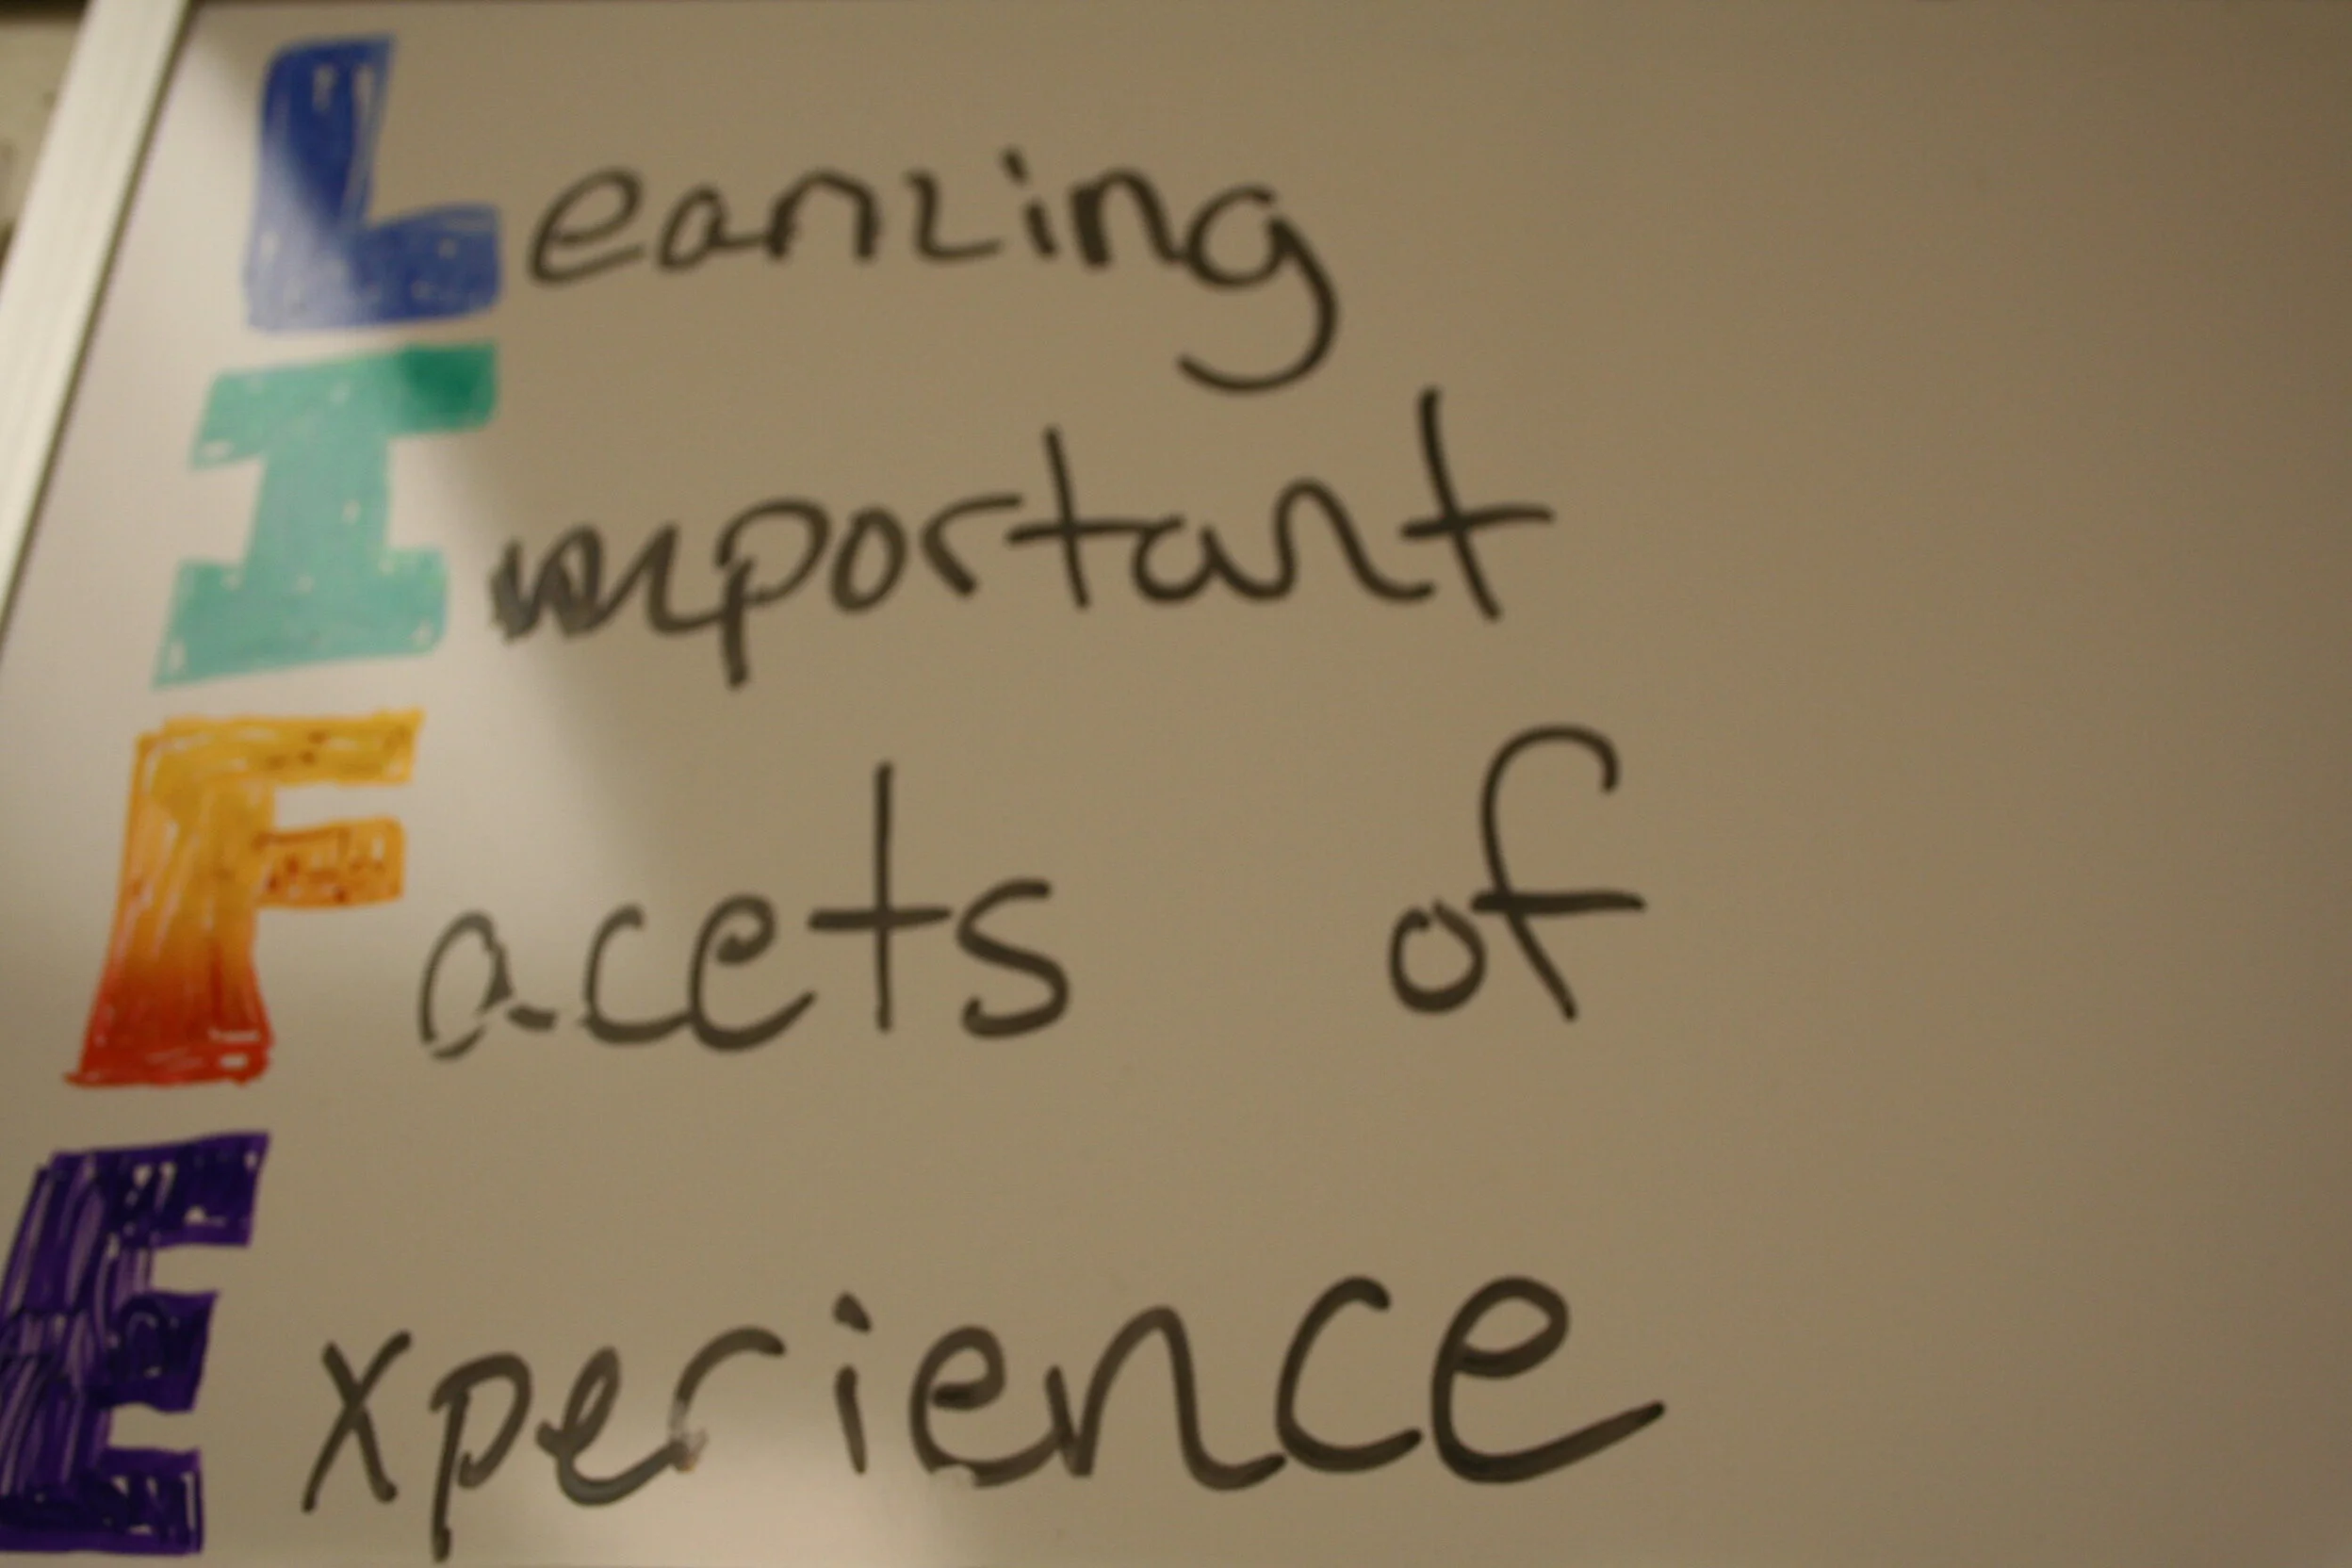 Learning
Important
Facets of
Experience